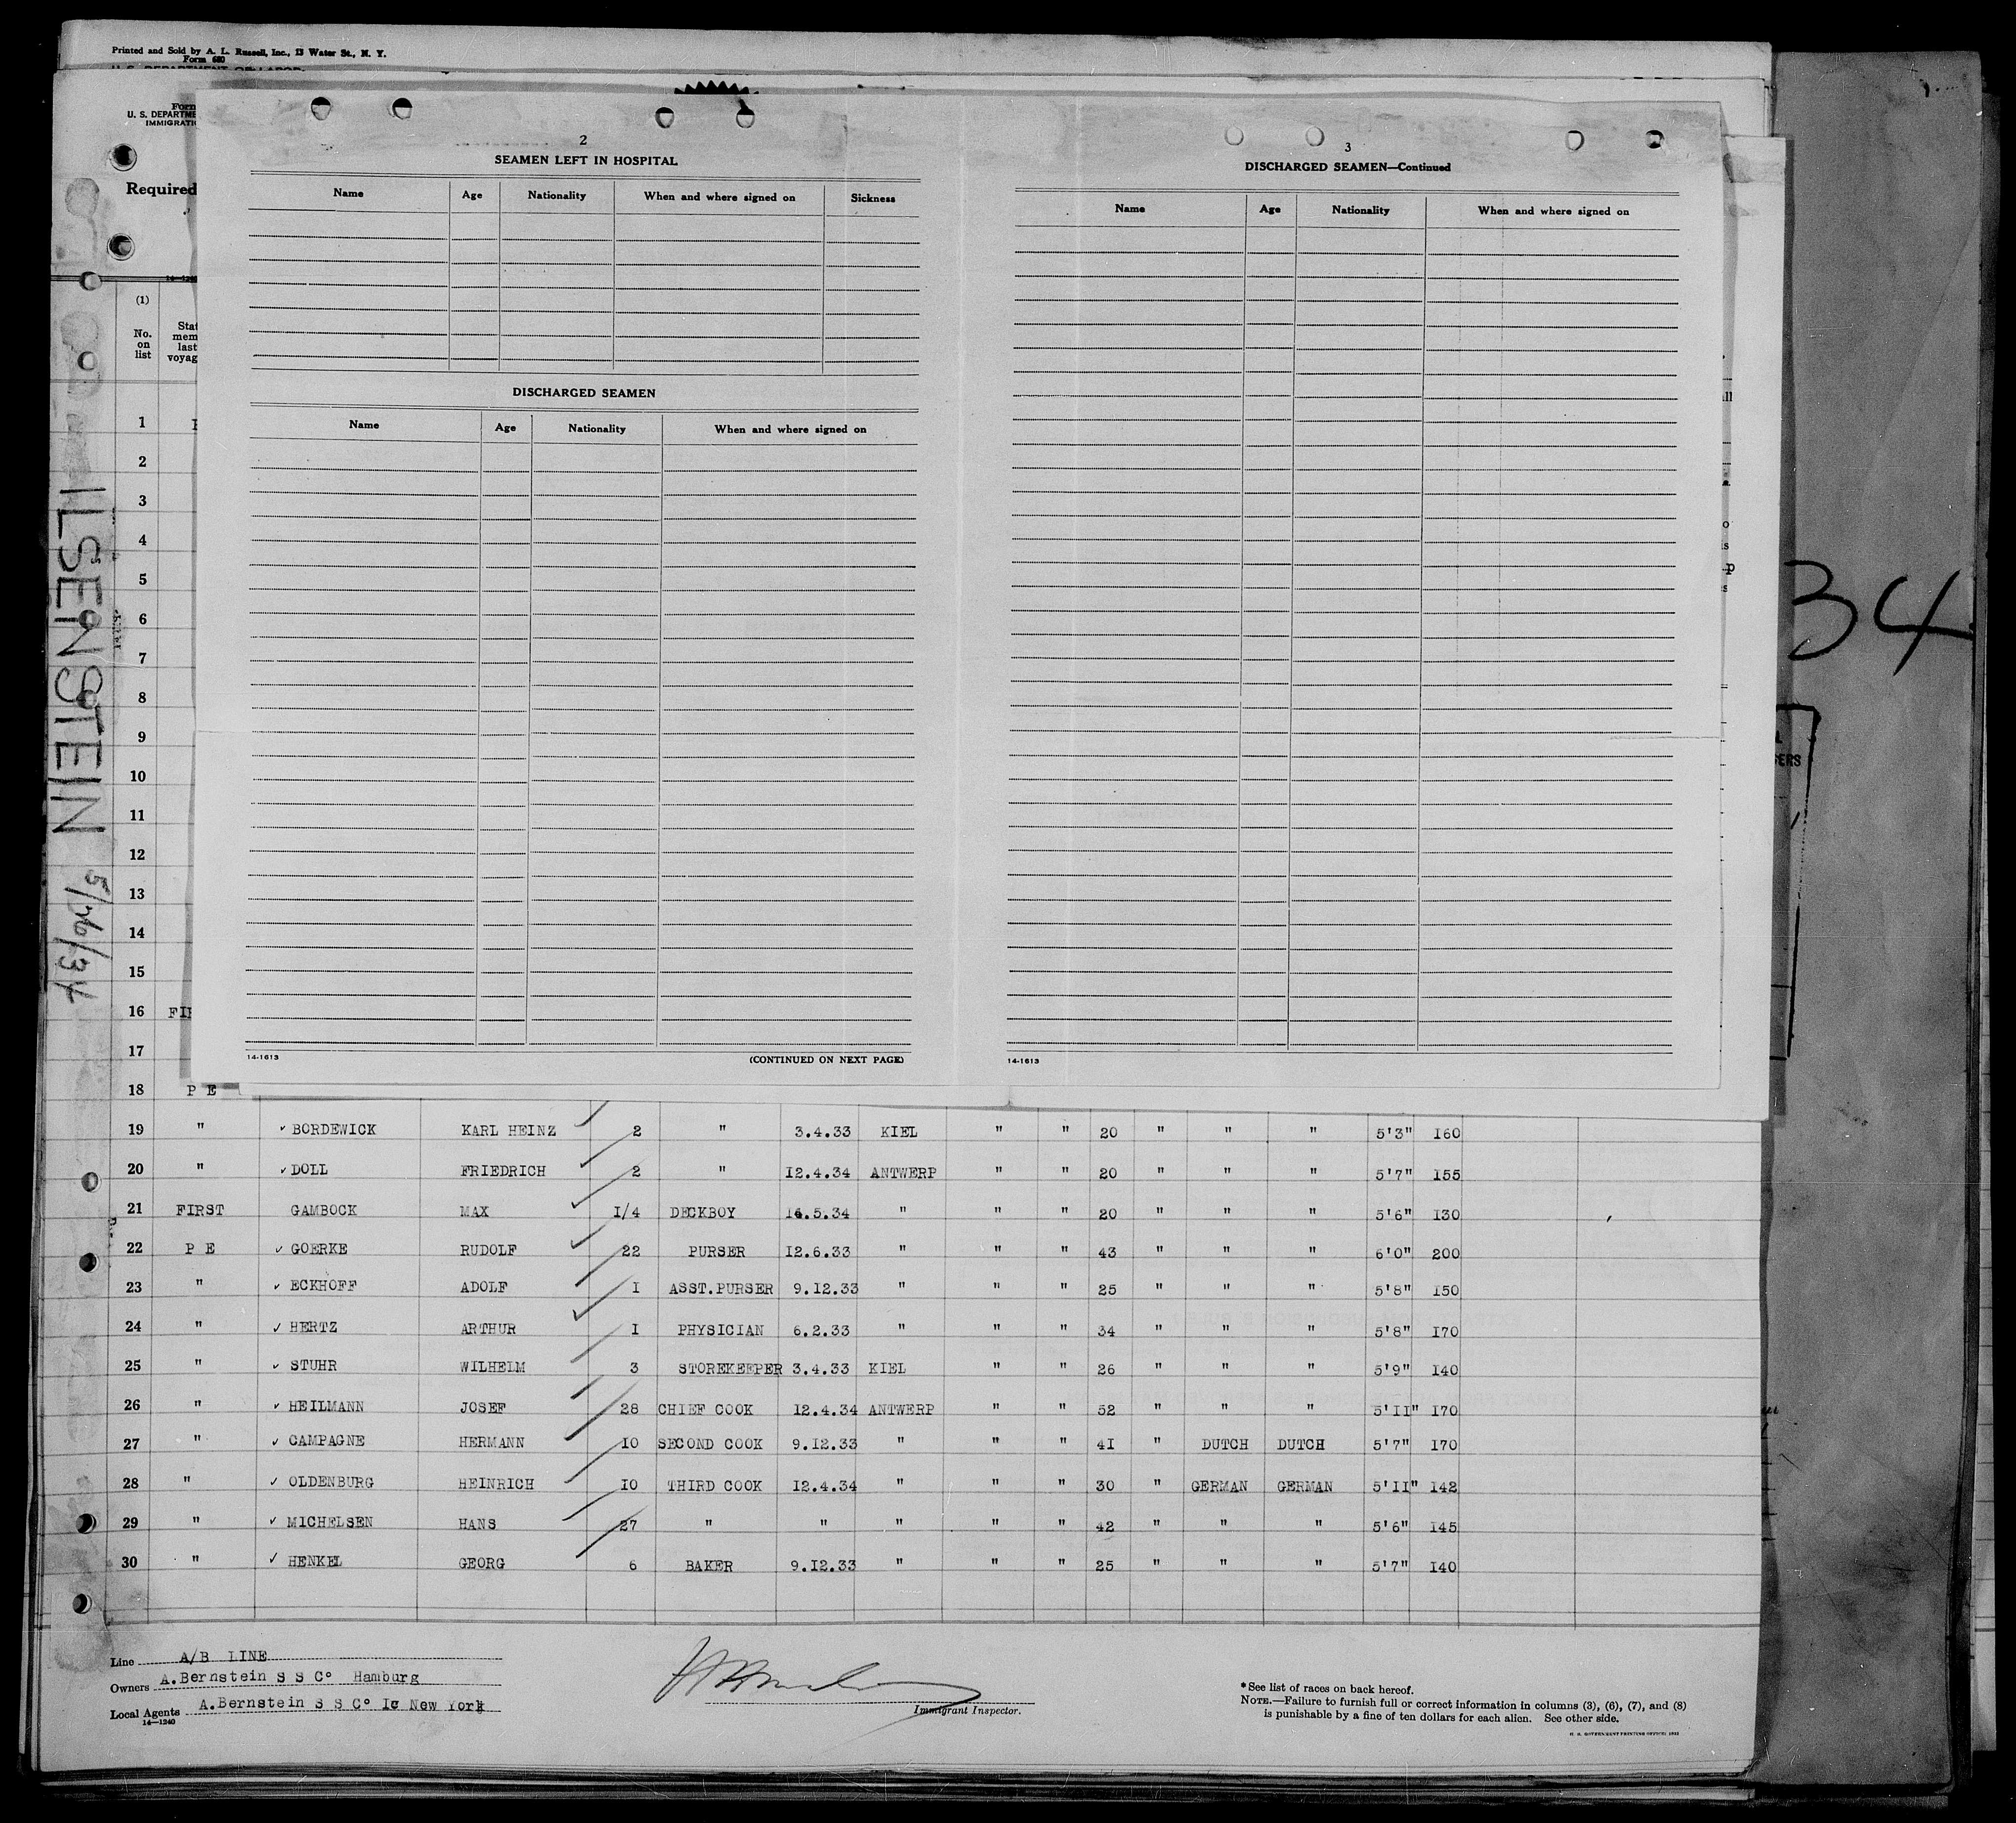 Printed and Sold by A. L. Russell, Inc., 13 Water St., N. Y.
Form 680
U. S. DEPARTMENT OF LABOR
Form
U. S. DEPARTME
IMMIGRATIO
Required
(1)
No. on list
Stat
mem
last
voyag
2
SEAMEN LEFT IN HOSPITAL
Name Age Nationality When and where signed on Sickness
DISCHARGED SEAMEN
Name Age Nationality When and where signed on
14-1613
(CONTINUED ON NEXT PAGE)
3
DISCHARGED SEAMEN—Continued
Name Age Nationality When and where signed on
14-1613
34
ILSENSTEIN 5/26/34
1
2
3
4
5
6
7
8
9
10
11
12
13
14
15
16 FIR
17
18 P E
19 " ✓ BORDEWICK KARL HEINZ 2 " 3.4.33 KIEL " " 20 " " " 5'3" 160
20 " ✓ DOLL FRIEDRICH 2 " 12.4.34 ANTWERP " " 20 " " " 5'7" 155
21 FIRST GAMBOCK MAX 1/4 DECKBOY 14.5.34 " " " 20 " " " 5'6" 130
22 P E ✓ GOERKE RUDOLF 22 PURSER 12.6.33 " " " 43 " " " 6'0" 200
23 " ✓ ECKHOFF ADOLF I ASST.PURSER 9.12.33 " " " 25 " " " 5'8" 150
24 " ✓ HERTZ ARTHUR I PHYSICIAN 6.2.33 " " " 34 " " " 5'8" 170
25 " ✓ STUHR WILHELM 3 STOREKEEPER 3.4.33 KIEL " " 26 " " " 5'9" 140
26 " ✓ HEILMANN JOSEF 28 CHIEF COOK 12.4.34 ANTWERP " " 52 " " " 5'11" 170
27 " ✓ CAMPAGNE HERMANN 10 SECOND COOK 9.12.33 " " " 41 " DUTCH DUTCH 5'7" 170
28 " ✓ OLDENBURG HEINRICH 10 THIRD COOK 12.4.34 " " " 30 " GERMAN GERMAN 5'11" 142
29 " ✓ MICHELSEN HANS 27 " " " " " 42 " " " 5'6" 145
30 " ✓ HENKEL GEORG 6 BAKER 9.12.33 " " " 25 " " " 5'7" 140
Line A/B LINE
Owners A.Bernstein S S Co Hamburg
Local Agents A.Bernstein S S Co Ic New York
14—1240
Immigrant Inspector.
* See list of races on back hereof.
NOTE.—Failure to furnish full or correct information in columns (3), (6), (7), and (8)
is punishable by a fine of ten dollars for each alien. See other side.
U. S. GOVERNMENT PRINTING OFFICE: 1932